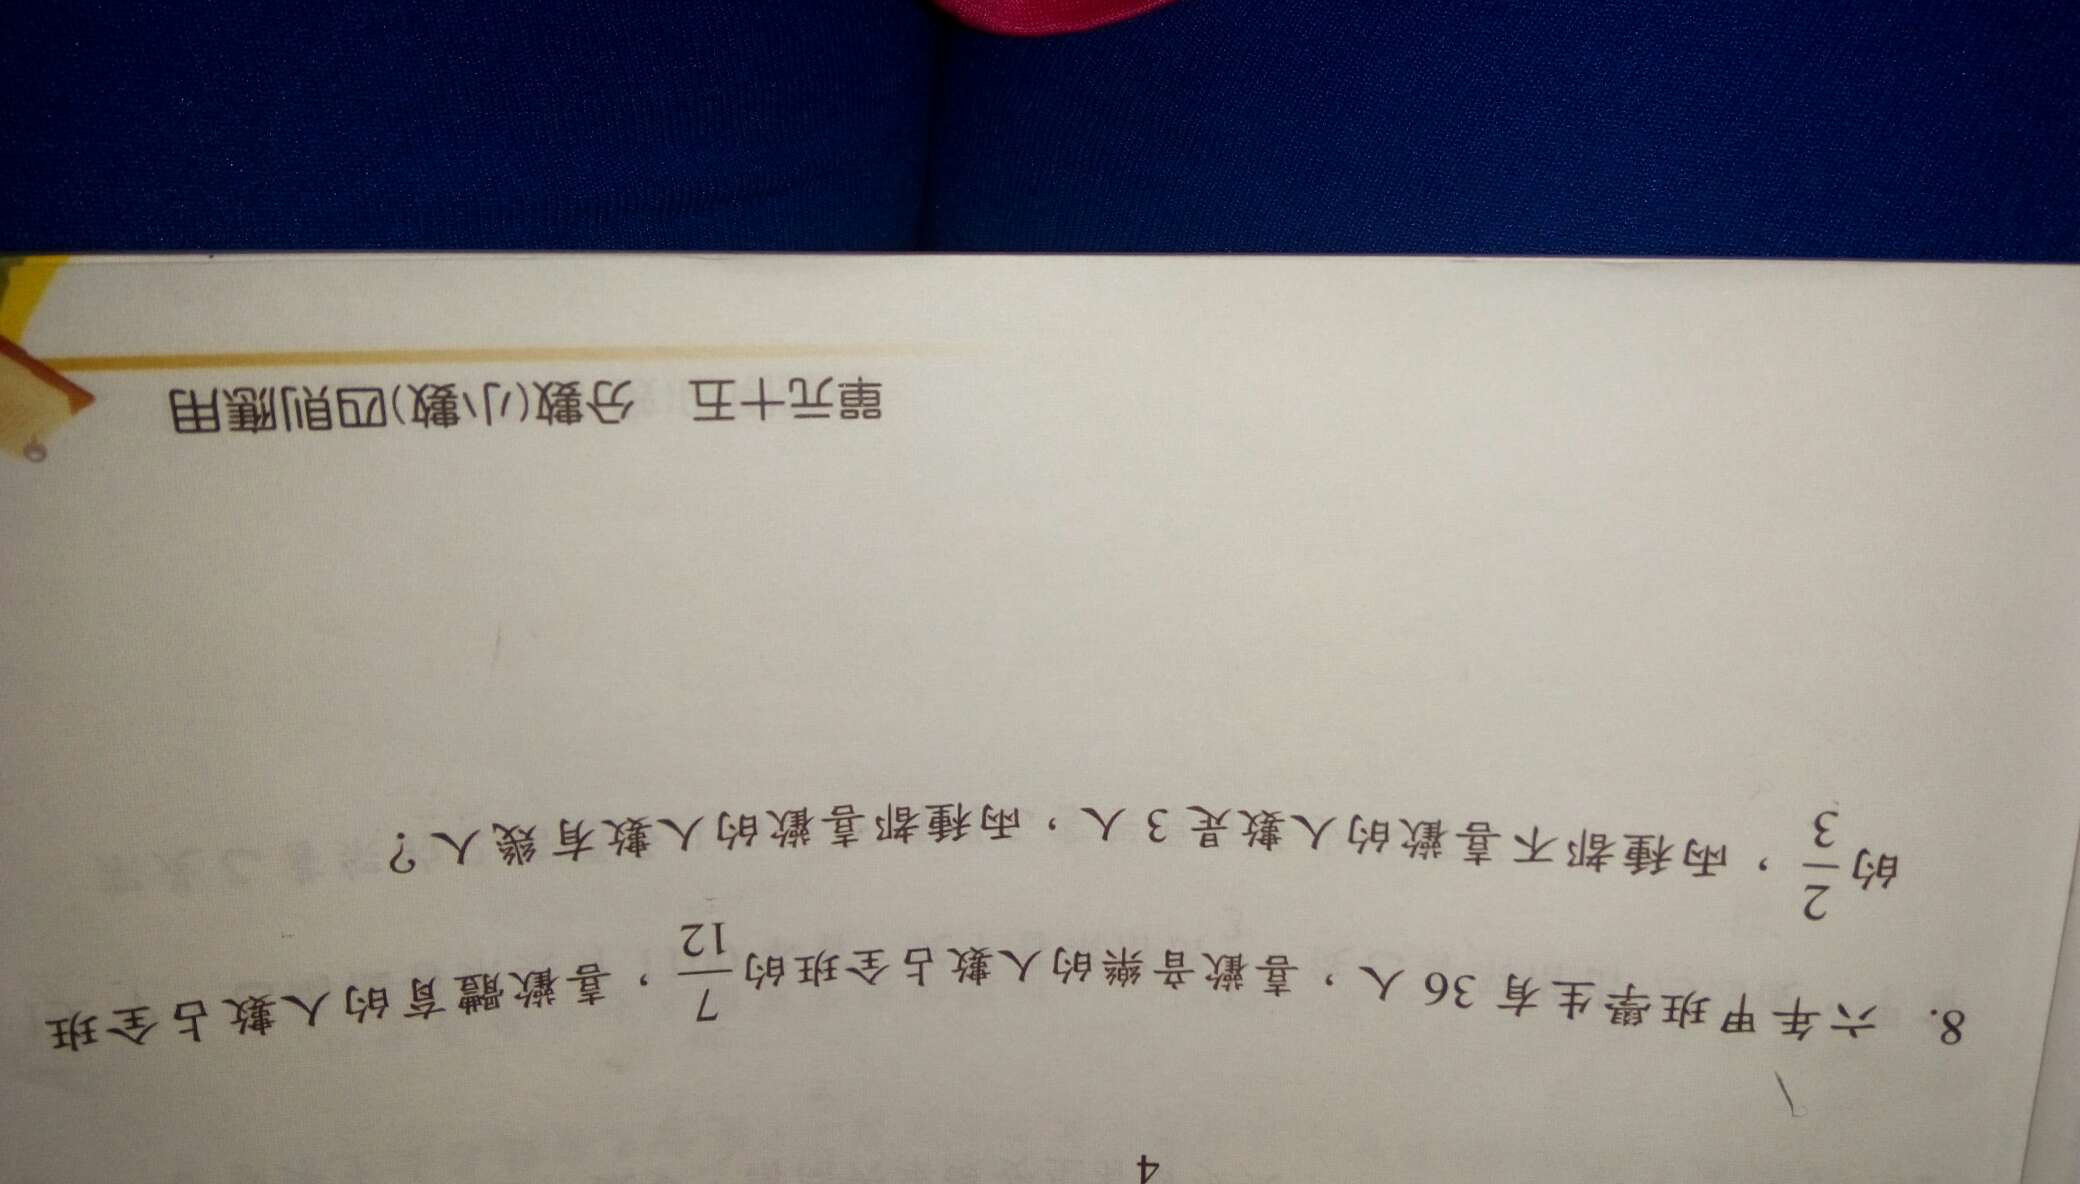 4
8. 六年甲班學生有 36 人，喜歡音樂的人數占全班的 7/12，喜歡體育的人數占全班
的 2/3，兩種都不喜歡的人數是 3 人，兩種都喜歡的人數有幾人？
單元十五 分數(小數)四則應用